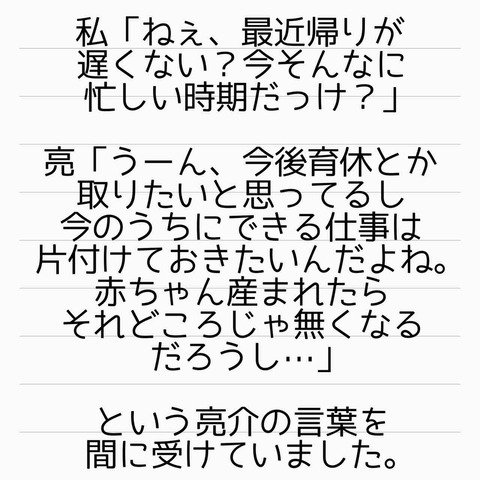 私「ねぇ、最近帰りが
遅くない？今そんなに
忙しい時期だっけ？」
亮「うーん、今後育休とか
取りたいと思ってるし
今のうちにできる仕事は
片付けておきたいんだよね。
赤ちゃん産まれたら
それどころじゃ無くなる
だろうし…」
という亮介の言葉を
間に受けていました。